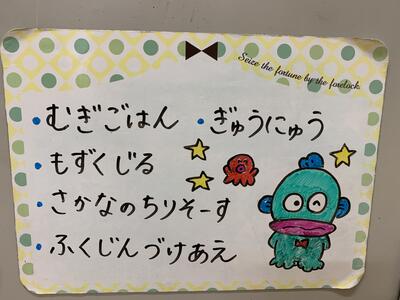 Seize the fortune by the forelock.
・むぎごはん ・ぎゅうにゅう
・もずくじる
・さかなのちりそーす
・ふくじんづけあえ